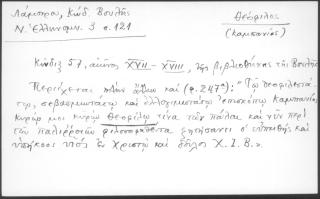 Λάμπρου, Κώδ. Βουλῆς
Ν. Ἑλληνομν. 3 σ. 121
Θεόφιλος
(Καμπανίας)
Κώδιξ 57, αἰῶνος XVII – XVIII, τῆς Βιβλιοθήκης τῆς Βουλῆς
Περιέχεται πλὴν ἄλλων καὶ (φ. 247α): "Τῷ θεοφιλεστά-
τῳ, σεβασμιωτάτῳ καὶ ἐλλογιμωτάτῳ ἐπισκόπῳ Καμπανίας
κυρίῳ μοι κυρίῳ Θεοφίλῳ τινα τῶν πάλαι καὶ νῦν περὶ
τῶν παλιρροιῶν φιλοσοφηθέντα ζητήσαντι ὁ εὐπειθὴς καὶ
ὑπήκοος υἱὸς ἐν Χριστῷ καὶ δοῦλος Χ. Ι. Β.».